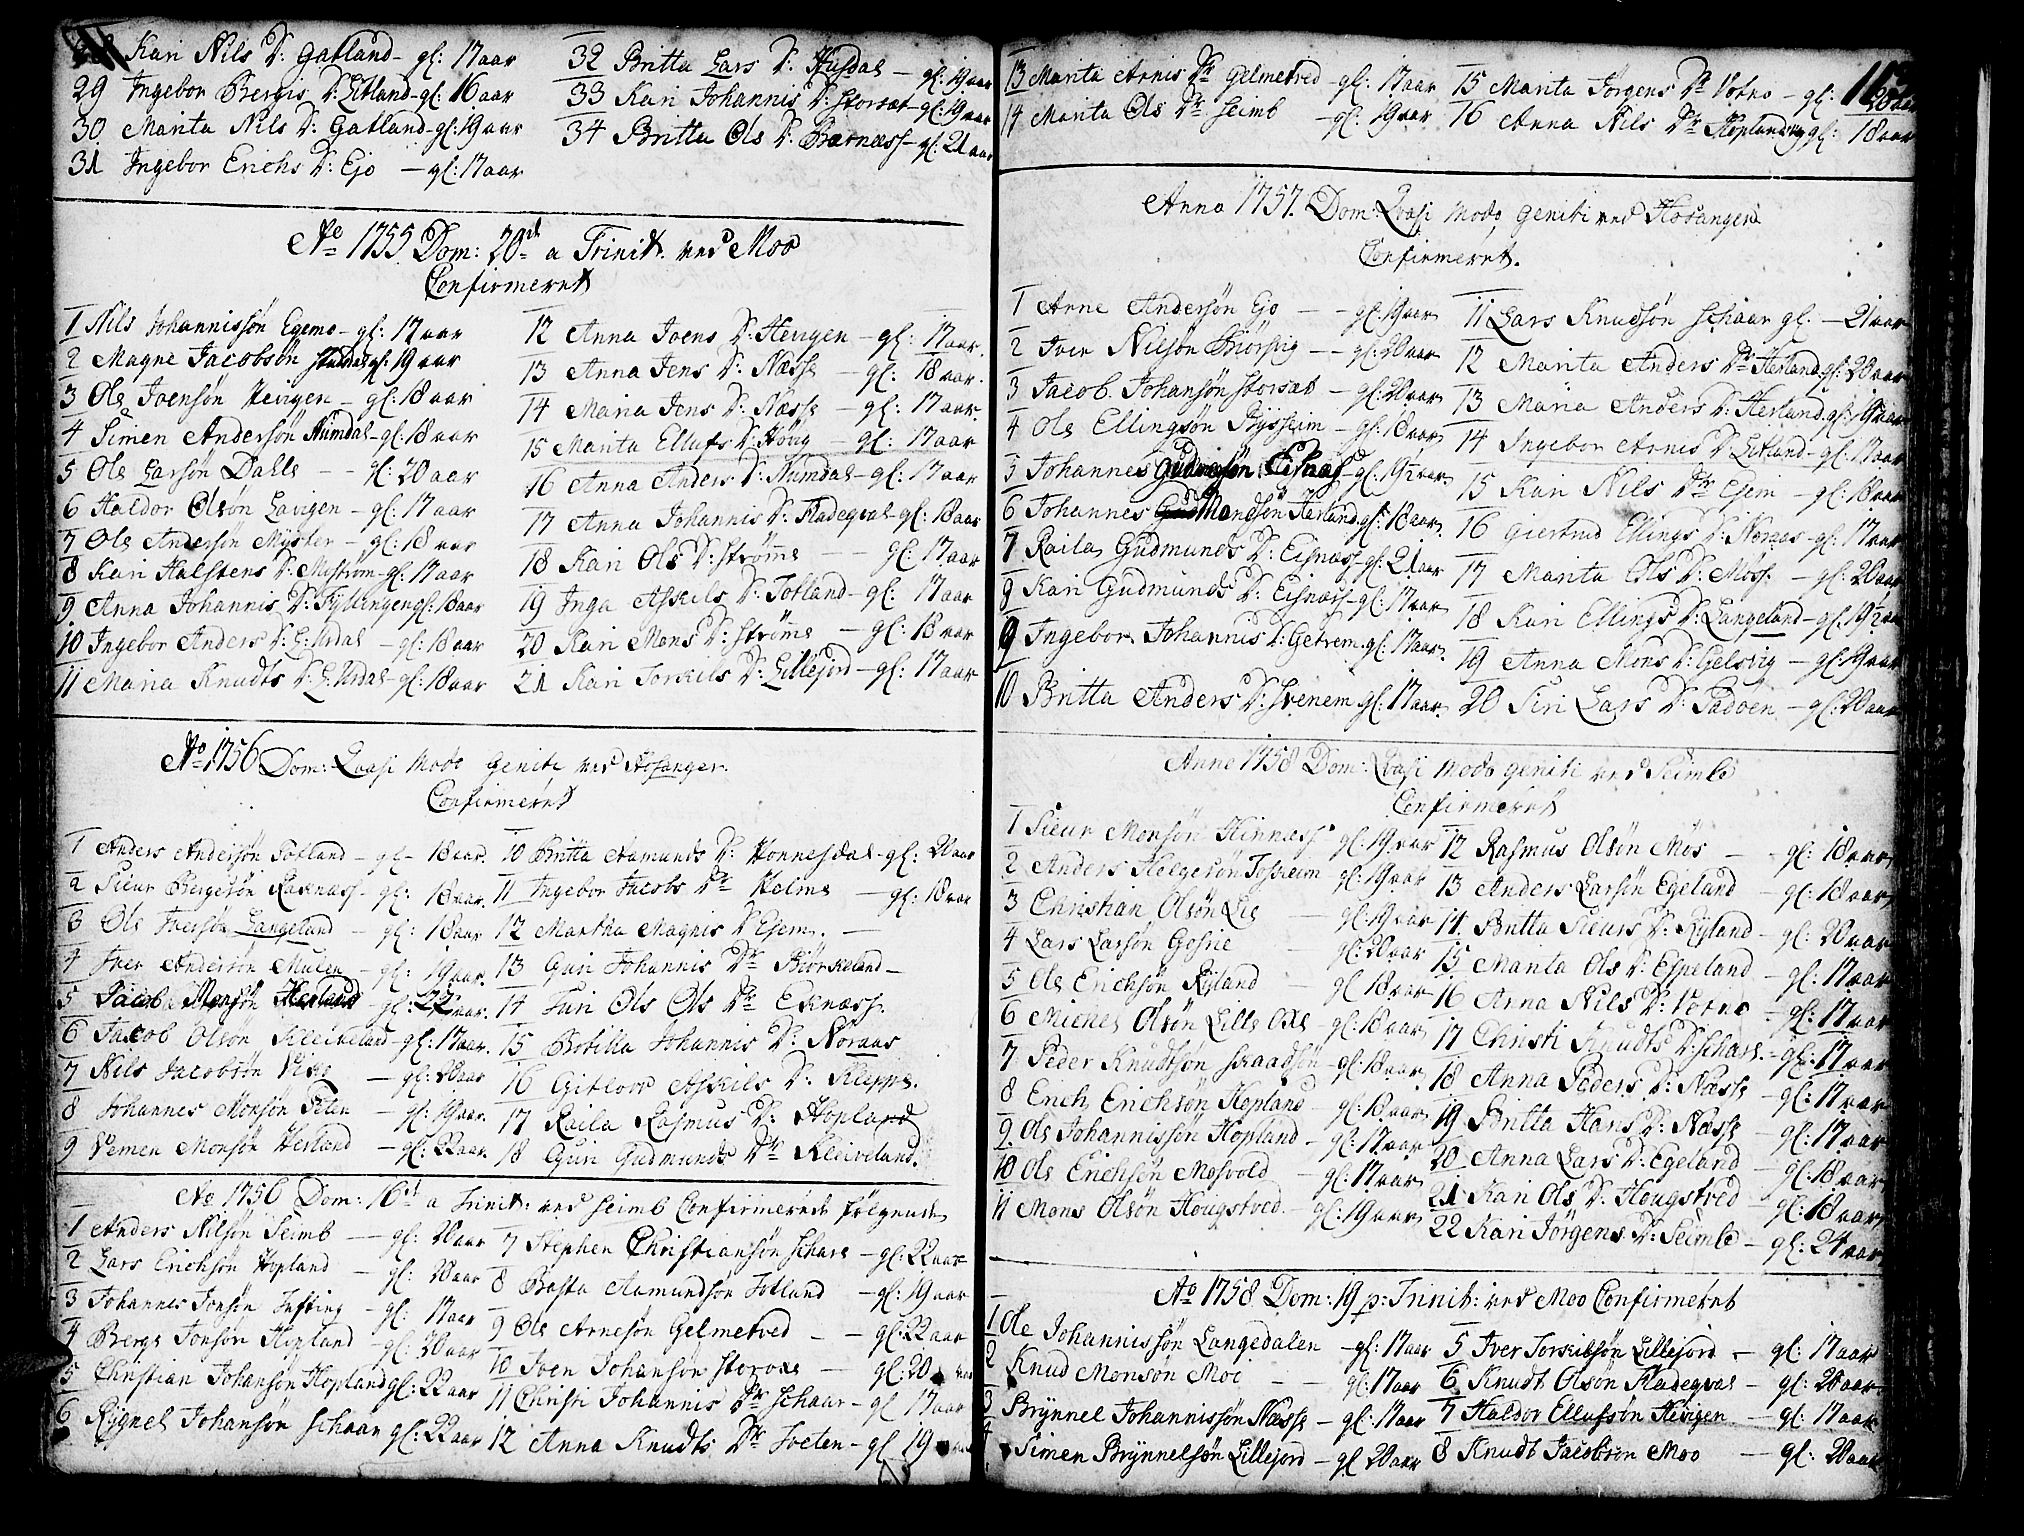 Kari Nils D: Gatland - gl: 17 aar
29 Ingebor Bergis D: Eitland - gl: 16 aar
30 Marita Nils D: Gatland - gl: 19 aar
31 Ingebor Erichs D: Ejo - gl: 17 aar
32 Britta Lars D: Husdal - gl: 19 aar
33 Kari Johannis D: Storsæt - gl: 19 aar
34 Britta Ols D: Bærnæss - gl: 21 aar
Ao 1755 Dom: 20de a Trinit: ved Moo
Confirmeret
1 Nils Johannissön Egemo - gl: 17 aar
2 Magne Jacobsön gl: 19 aar
3 Ole Joensön Hevigen - gl: 18 aar
4 Simen Andersön Numdal - gl: 18 aar
5 Ole Larsön Dalle - - gl: 20 aar
6 Haldor Olsön Lavigen - gl: 17 aar
7 Ole Andersön Myster - gl: 18 aar
8 Kari Halstens D: - gl: 17 aar
9 Anna Johannis D: Fyllingen gl: 18 aar
10 Ingebor Anders D: L: Urdal - gl: 18 aar
11 Maria Knudts D: L: Urdal - gl: 18 aar
12 Anna Joens D: Hevigen - gl: 17 aar
13 Anna Jens D: Næsse - gl: 18 aar
14 Maria Jens D: Næsse - gl: 17 aar
15 Marita Ellufs D: Höug - gl: 17 aar
16 Anna Anders D: Numdal - gl: 17 aar
17 Anna Johannis D: Fladeqval - gl: 18 aar
18 Kari Ols D: Ströme - - gl: 17 aar
19 Inga Askils D: Totland - gl: 17 aar
20 Kari Mons D: Ströme - gl: 18 aar
21 Kari Torkils D: Lillejord - gl: 17 aar
Ao 1756 Dom: Qvasi Modo geniti ved Hosanger
Confirmeret
1 Anders Andersön Totland - gl - 18 aar
2 Sieur Bergesön Raknæss - gl: 18 aar
3 Ole Iversön Langeland - gl: 18 aar
4 Iver Andersön Mulen - gl: 19 aar
5 Jacob Monsön Herland - gl: 22 aar
6 Jacob Olsön Kleiveland - gl: 17 aar
7 Nils Jacobsön - gl: 20 aar
8 Johannes Monsön - gl: 19 aar
9 Vemen Monsön Herland - gl: 22 aar
10 Britta Aamunds D: Honnesdal - gl: 20 aar
11 Ingebor Jacobs Dr Helme - gl: 18 aar
12 Martha Magnis D: Ejem. -
13 Guri Johannis Dr Biörkeland -
14 Ols Ols Dr Eknæss
15 Botilla Johannis D: Noraas
16 Gitloor Askils D: Kleppe.
17 Raila Rasmus D: Hopland
18 Guri Gudmunds Dr Kleiveland.
Ao 1756 Dom: 16de a Trinit: ved Seimb Confirmerede fölgende
1 Anders Nilsön Seimb - gl: 20 aar
2 Lars Erichsön Hopland - gl: 20 aar
3 Johannes Jonsön Tefting - gl: 17 aar
4 Berge Jonsön Hopland - gl: 20 aar
5 Christian Johansön Hopland gl: 22 aar
6 Rögnel Johansön Schaar gl: 22 aar
7 Stephen Christiansön Schare - gl: 22 aar
8 Basta Aamundsön Totland - gl: 19 aar
9 Ole Arnesön Gelmetved - - gl: 22 aar
10 Iver Johansön - gl: 20
11 Christi Johannis Dr Schaar - gl 17 aar
12 Anna Knudts Dr Tveten - gl 19
13 Marita Arnis Dr Gelmetved - gl: 17 aar
14 Marita Ols Dr Seimb - gl: 19 aar
15 Marita Jörgens Dr Votno - gl: 20 aar
16 Anna Nils Dr gl: 18 aar
Anno 1757. Dom: Qvasi modo geniti ved Hosanger
Confirmeret.
1 Arne Andersön Ejo - - gl: 19 aar
2 Iver Nilsön - - gl: 20 aar
3 Jacob Johansön Storsæt - gl: 20 aar
4 Ole Ellingsön Bysheim - gl: 18 aar
5 Johannes Gudmisön Eisnæss gl: 19½ aar
6 Johannes Gudmondsön Herland gl: 18 aar
7 Raila Gudmunds D: Eisnæss gl: 21 aar
8 Kari Gudmunds D: Eisnæss - gl: 17 aar
9 Ingebor Johannis D: Getrem gl: 17 aar
10 Britta Anders D: Svenem gl: 17 aar
11 Lars Knudsön Schaar gl. - 21 aar
12 Marita Anders Dr Herland gl: 20 aar
13 Maria Anders D: Herland gl: aar
14 Ingebor Arnis D: Eitland - gl: 17 aar
15 Kari Nils Dr Ejem - gl: 18 aar
16 Giertrud Ellings D: Noraas - gl: 17 aar
17 Marita Ols D: Möss - gl: 20 aar
18 Kari Ellings D: Langeland - gl: 19½ aar
19 Anna Mons D: Gelsvig - gl: 19 aar
20 Siri Lars D: Padöen - gl: 20 aar
Anno 1758 Dom: Qvasi modo geniti ved Seimb
Confirmeret
1 Sieur Monsön Hinnæss gl: 19 aar
2 Anders Helgesön Toskeim gl: 19 aar
3 Christian Olsön Lie - gl: 19 aar
4 Lars Larsön Gosrie - gl: 20 aar
5 Ole Erichsön Ryland - gl 18 aar
6 Michel Olsön Lille Oxe - gl: 18 aar
7 Peder Knudtsön - gl: 18 aar
8 Erich Erichsön Hopland - gl: 18 aar
9 Ole Johannissön Hopland - gl: 17 aar
10 Ole Erichsön Mosvold - gl: 17 aar
11 Mons Olsön Hougstved - gl: 19 aar
12 Rasmus Olsön Mös - gl: 18 aar
13 Anders Larsön Egeland - gl: 18 aar
14 Britta Sieurs D: Ryland - gl: 20 aar
15 Marita Ols D: Espeland - gl: 17 aar
16 Anna Nils D: Votno - gl: 17 aar
17 Christi Knudts D: Schare - gl: 17 aar
18 Anna Peders D: Næsse - gl: 17 aar
19 Britta Hans D: Næsse - gl: 17 aar
20 Anna Lars D: Egeland - gl: 18 aar
21 Kari Ols D: Hougstved - gl: 18 aar
22 Kari Jörgens D: Seimb - gl: 24 aar
Ao 1758 Dom: 19 p: Trinit: ved Moo Confirmeret
1 Ole Johannissön Langedalen - gl: 17 aar
2 Knud Monsön Moe - - gl: 17 aar
3 Brynnel Johannissön Næsse - gl: 17 aar
4 Simen Brynnelsön Lillejord - gl 20 aar
5 Iver Torkilsön Lillejord - gl: 17 aar
6 Knudt Olsön Fladeqval - gl: 20 aar
7 Haldor Ellufsön Hevigen - gl: 17 aar
8 Knudt Jacobsön Moo - gl: 20 aar